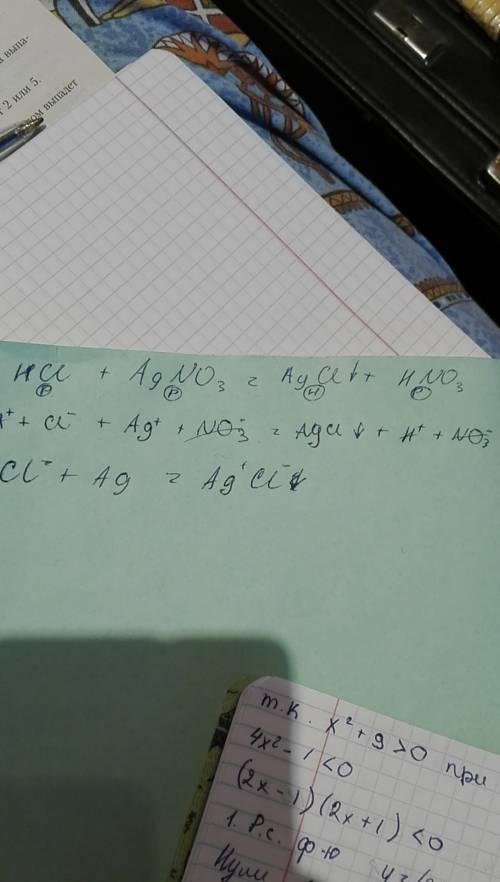 выпа-
2 или 5.
выпадет
HCl + AgNO₃ = AgCl↓ + HNO₃
Р Р Н Р
H⁺ + Cl⁻ + Ag⁺ + NO₃⁻ = AgCl↓ + H⁺ + NO₃⁻
Cl⁻ + Ag = Ag⁺Cl⁻↓
т.к. x² + 9 > 0 при
4x² - 1 < 0
(2x - 1)(2x + 1) < 0
1. Р.с. ф-ю y =
Нули